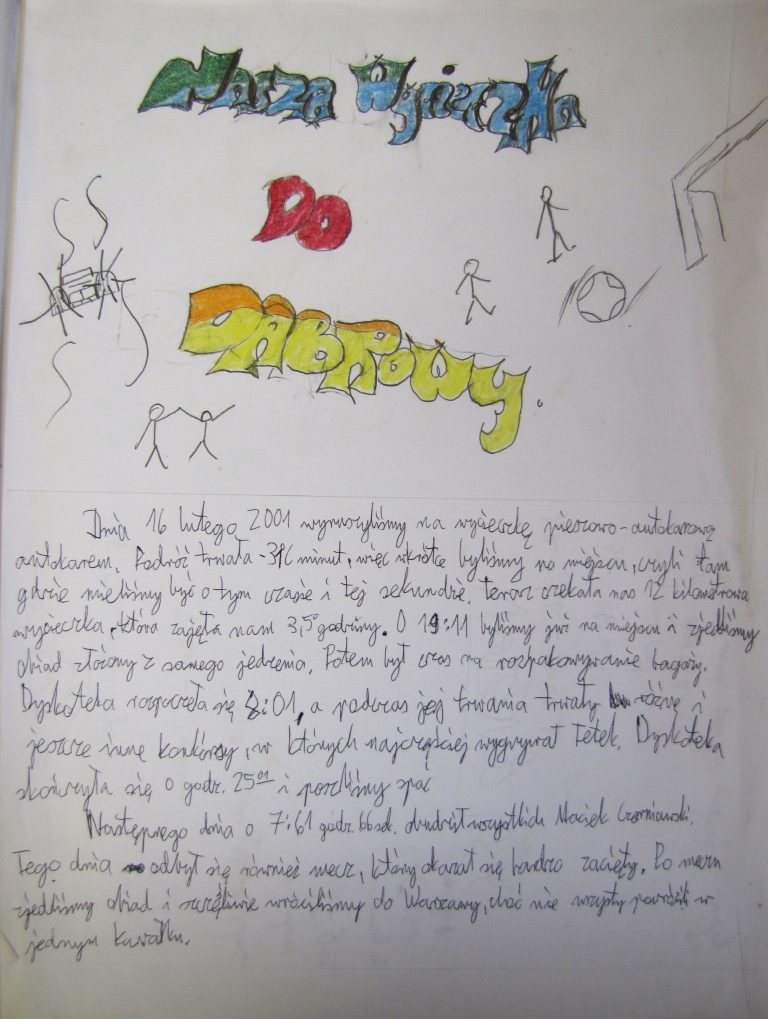 Nasza Wycieczka
DO
DĄBROWY.
Dnia 16 lutego 2001 wyruszyliśmy na wycieczkę pieszowo-autokarową
autokarem. Podróż trwała minut, więc wkrótce byliśmy na miejscu, czyli tam
gdzie mieliśmy być o tym czasie i tej sekundzie, teraz czekała nas 12 kilometrowa
wycieczka, która zajęła nam 3,5 godziny. O 19:11 byliśmy już na miejscu i zjedliśmy
obiad złożony z samego jedzenia. Potem był czas na rozpakowywanie bagaży.
Dyskoteka rozpoczęła się 8:01, a podczas jej trwania trwały różne i
jeszcze inne konkórsy, w których najczęściej wygrywał Tetek. Dyskoteka
skończyła się o godz. 25⁰¹ i poszliśmy spać
Następnego dnia o 7:61 godz. 66 sek. obudził wszystkich Maciek Czerniawski.
Tego dnia odbył się również mecz, który okazał się bardzo zacięty. Po meczu
zjedliśmy obiad i szczęśliwie wróciliśmy do Warszawy, choć nie wszyscy powrócili w
jednym kawałku.